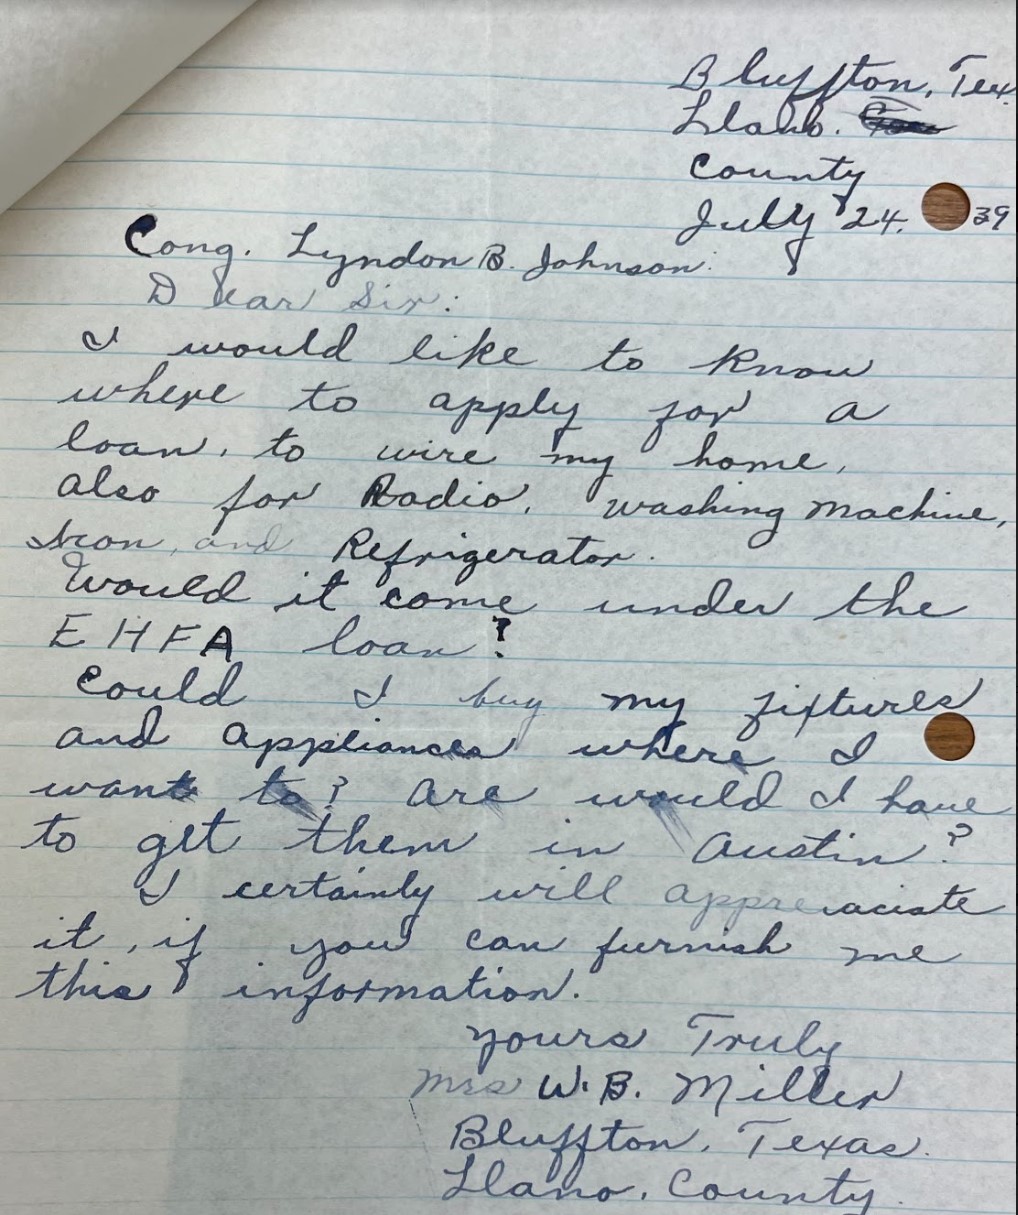 Bluffton, Tex.
Llano.
County
July 24. 39
Cong. Lyndon B. Johnson:
Dear Sir:
I would like to know
where to apply for a
loan, to wire my home,
also for Radio, washing machine,
Iron, and Refrigerator.
Would it come under the
EHFA loan?
Could I buy my fixtures
and appliances where I
want to? Are would I have
to get them in Austin?
I certainly will appreaciate
it, if you can furnish me
this information.
Yours Truly
Mrs W. B. Miller
Bluffton, Texas.
Llano, County.